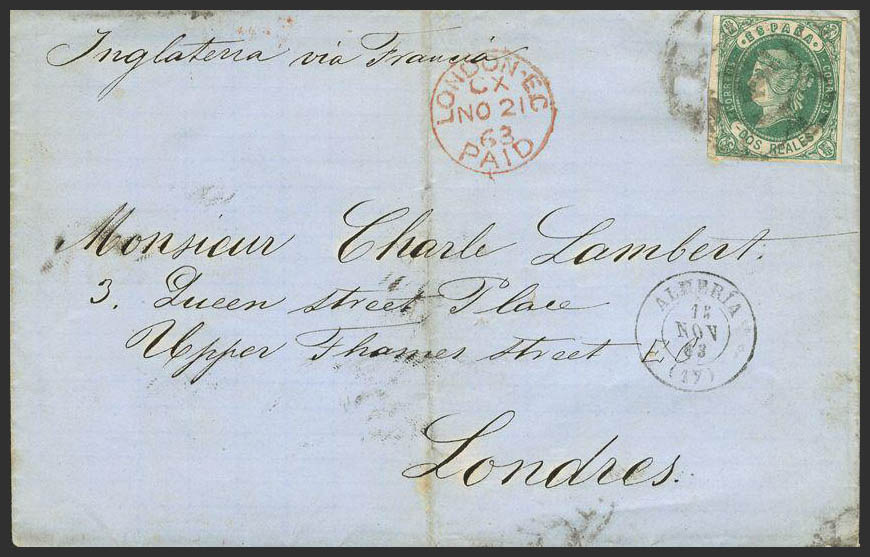 Inglaterra via Francia
LONDON·E.C
CX
NO 21
63
PAID
ESPAÑA
DOS REALES
Monsieur Charle Lambert.
3. Queen Street Place
Upper Thames Street EC
Londres.
ALMERÍA
NOV
63
(19)